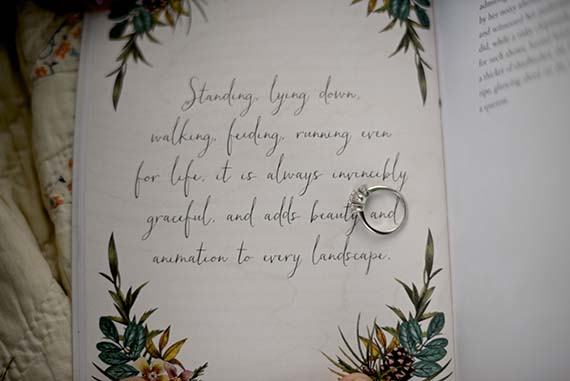 Standing, lying down,
walking, feeding, running even
for life, it is always invincibly
graceful, and adds beauty and
animation to every landscape.
by her noisy
and witnessed her
did, while a
for such
a thicket of
ripe, glowing